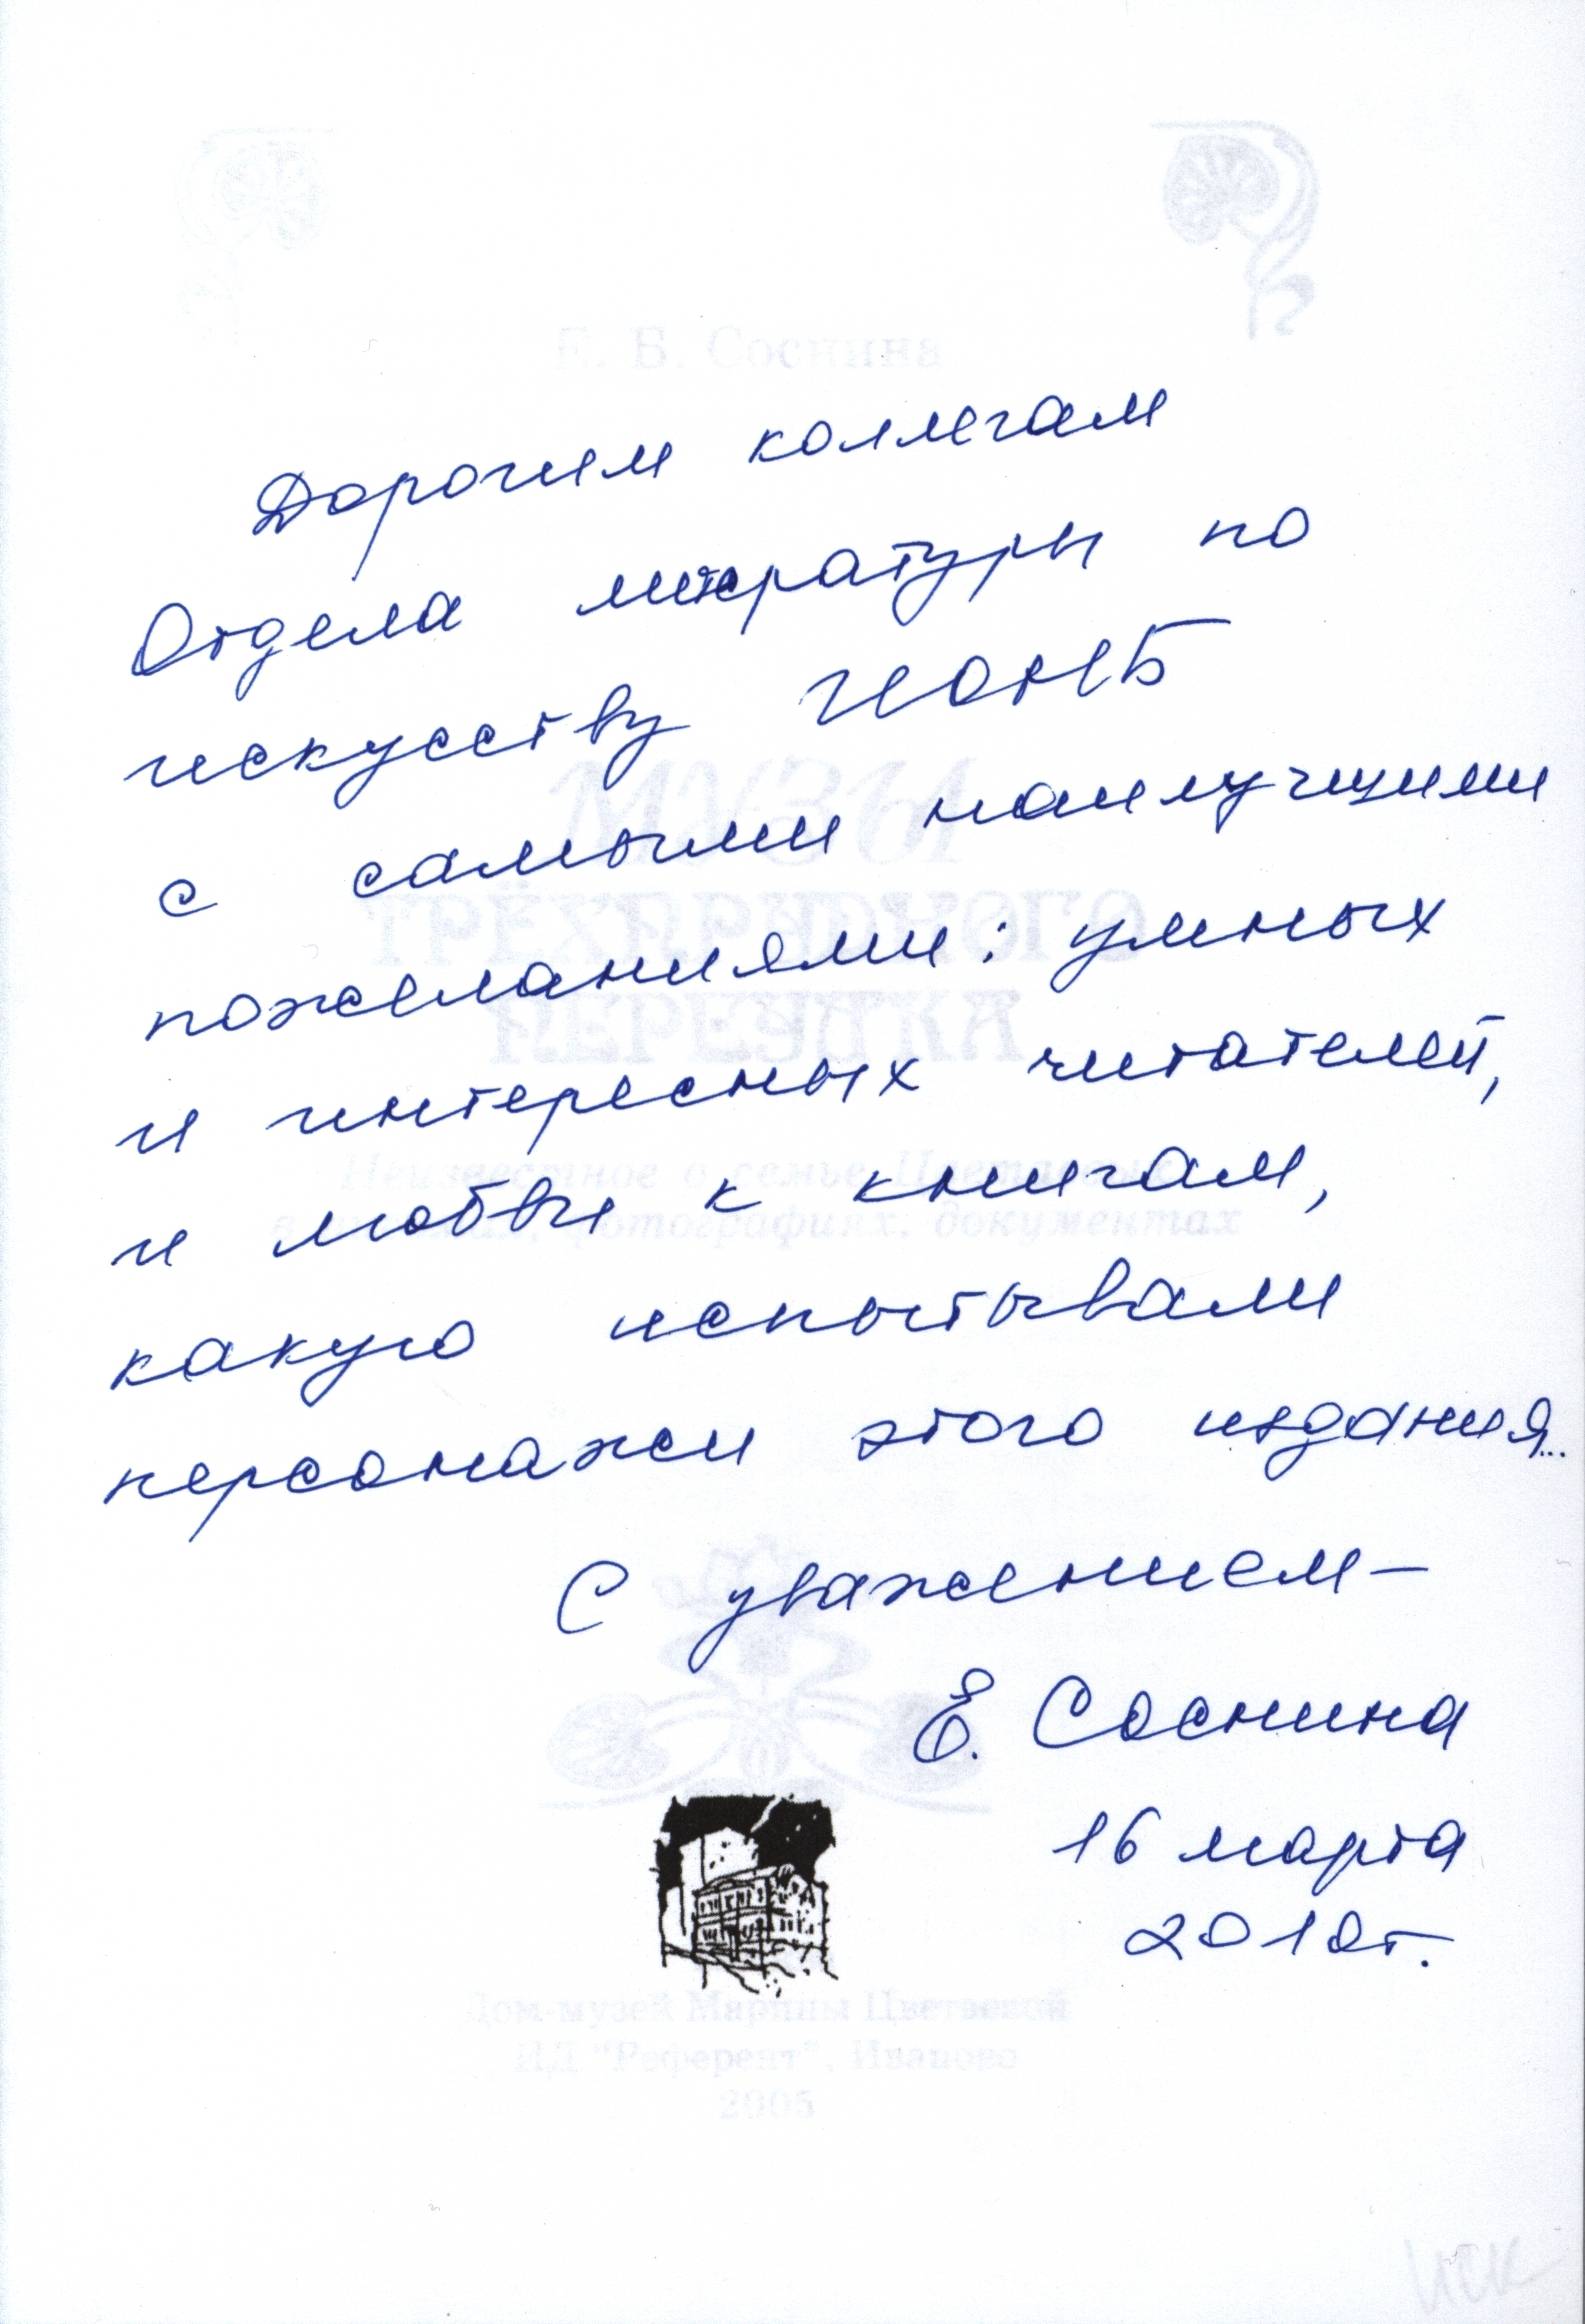 Е. Б. Соснина
Дорогим коллегам
Отдела литературы по
искусству ИОНБ
с самыми наилучшими
пожеланиями: умных
и интересных читателей,
и любви к книгам,
какую испытывали
персонажи этого издания...
С уважением –
Е. Соснина
16 марта
2010г.
МУЗЫ
ТРЁХПРУДНОГО
ПЕРЕУЛКА
Неизвестное о семье Цветаевых
фотографиях, документах
Дом-музей Марины Цветаевой
ИД "Референт", Иваново
2005
ИСК